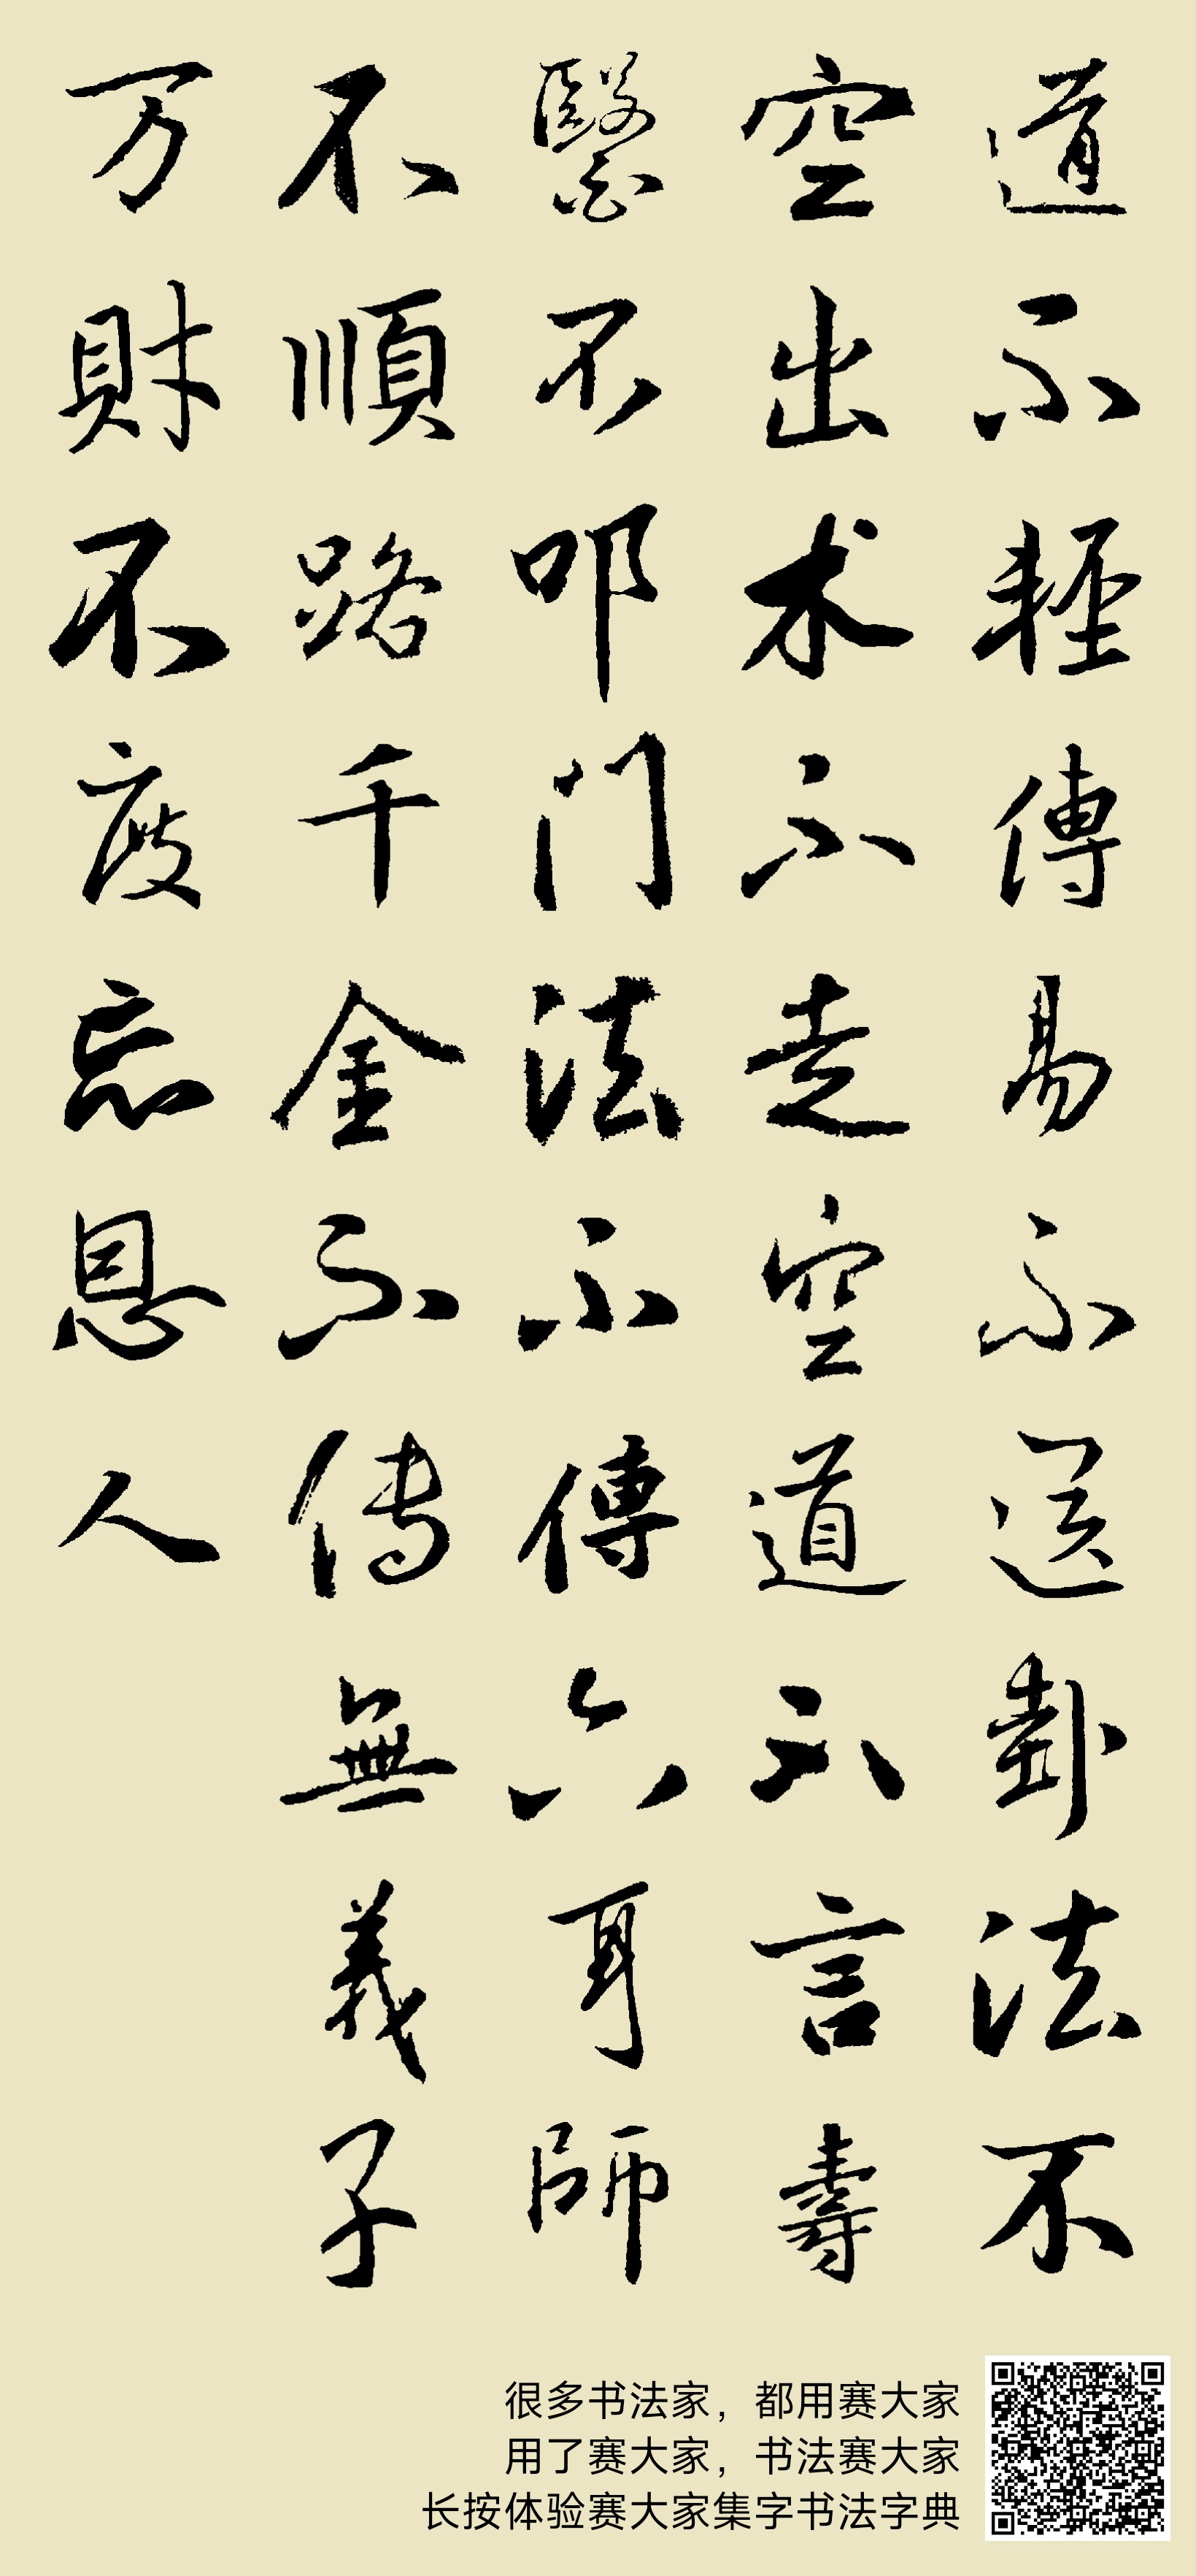 道不輕傳易不送卦法不
空出术不走空道不言壽
醫不叩门法不傳六耳師
不順路千金不传無義子
万財不度忘恩人
很多书法家，都用赛大家
用了赛大家，书法赛大家
长按体验赛大家集字书法字典